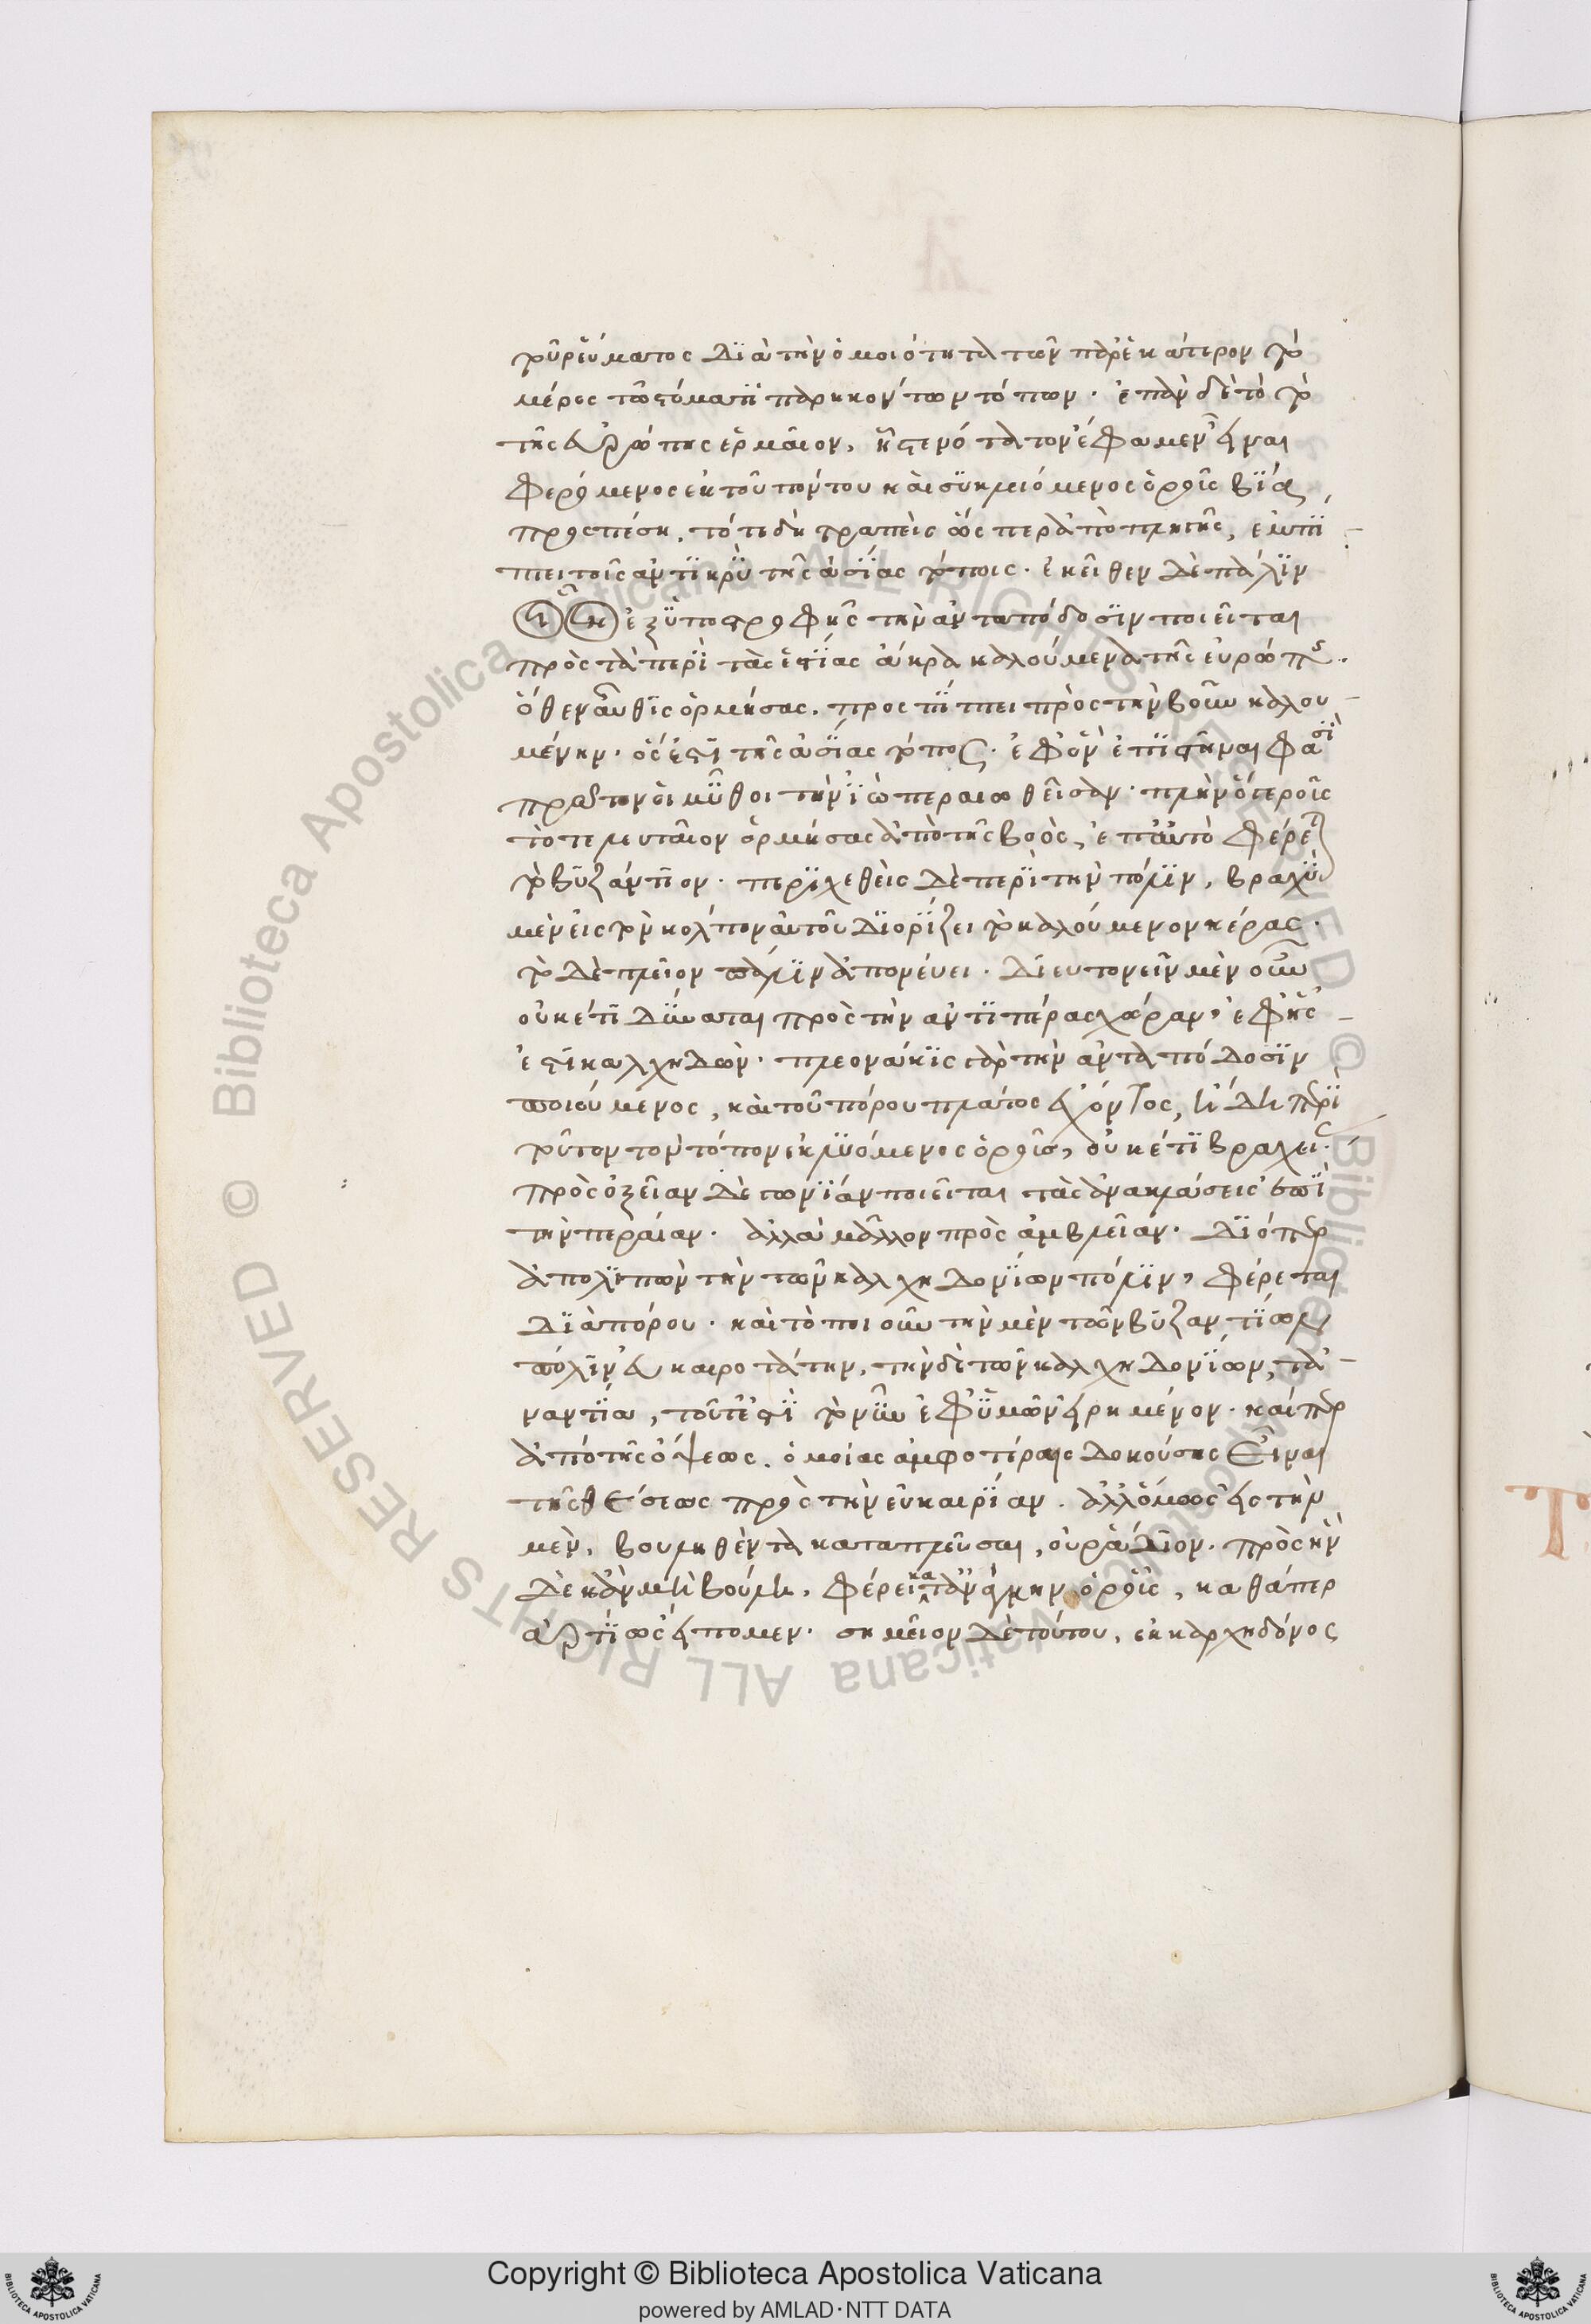 τοῦ ῥεύματος διὰ τὴν ὁμοιότητα τῶν παρ' ἑκάτερον τὸ
μέρος τῶ στόματι παρηκόντων τόπων. ἐπὰν δὲ τὸ τὸ
τῆς εὐρώπης ἑρμαῖον, ἧ στενότατον ἔφαμεν εἶναι
φερόμενος ἐκ τοῦ πόντου καὶ συγκλειόμενος ὁ ῥοῦς βία
προσπέση. τότε δὴ τραπεὶς ὥσπερ ἀπὸ πληγῆς, ἐμπί
πτει τοῖς ἀντικρὺ τῆς ἀσίας τόποις. ἐκεῖθεν δὲ πάλιν
ἐξ ὑποστροφῆς τὴν ἀνταπόδοσιν ποιεῖται
πρὸς τὰ περὶ τὰς ἑστίας ἄκρα καλούμενα τῆς εὐρώπης.
ὅθεν αὖθις ὁρμήσας. προσπίπτει πρὸς τὴν βοῦν καλου
μένην. ὅς ἐστι τῆς ἀσίας τόπος. ἐφ' ὃν ἐπιστῆναι φασὶ
πρῶτον οἱ μῦθοι τὴν ἰὼ περαιωθεῖσαν. πλὴν ὅ τε ῥοῦς
τὸ τελευταῖον ὁρμήσας ἀπὸ τῆς βοὸς, ἐπ' αὐτὸ φέρεται
τὸ βυζάντιον. περισχεθεὶς δὲ περὶ τὴν πόλιν, βραχὺ
μὲν εἰς τὸν κόλπον αὐτοῦ διορίζει τὸ καλούμενον κέρας.
τὸ δὲ πλεῖον πάλιν ἀπονεύει. διευτονεῖν μὲν οὖν
οὐκέτι δύναται πρὸς τὴν ἀντιπέρας χώραν, ἐφ' ἧς
ἐστι καλχηδών. πλεονάκις γὰρ τὴν ἀνταπόδοσιν
ποιούμενος, καὶ τοῦ πόρου πλάτος ἔχοντος, ἤδη περὶ
τοῦτον τὸν τόπον ἐκλυόμενος ὁ ῥοῦς, οὐκέτι βραχείας
πρὸς ὀξεῖαν γωνίαν ποιεῖται τὰς ἀνακλάσεις ἐπὶ
τὴν περαίαν. ἀλλὰ μᾶλλον πρὸς ἀμβλεῖαν. διόπερ
ἀπολιπὼν τὴν τῶν καλχηδονίων πόλιν, φέρεται
διὰ πόρου. καὶ τὸ ποιοῦν τὴν μὲν τῶν βυζαντίων
πόλιν εὐκαιροτάτην, τὴν δὲ τῶν καλχηδονίων, τἀ
ναντία, τοῦτ' ἐστὶ τὸ νῦν ἐφ' ὑμῶν εἰρημένον. καίπερ
ἀπὸ τῆς ὄψεως. ὁμοίας ἀμφοτέραις δοκούσης εἶναι
τῆς θέσεως πρὸς τὴν εὐκαιρίαν. ἀλλ' ὅμως εἰς τὴν
μὲν, βουληθέντα καταπλεῦσαι, οὐ ῥάδιον. πρὸς ἣν
δὲ κἂν μὴ βούλη, φέρει κατ' ἀνάγκην ὁ ῥοῦς, καθάπερ
ἀρτίως εἴπομεν. σημεῖον δὲ τούτου, ἐκ καρχηδόνος
Copyright © Biblioteca Apostolica Vaticana
powered by AMLAD·NTT DATA